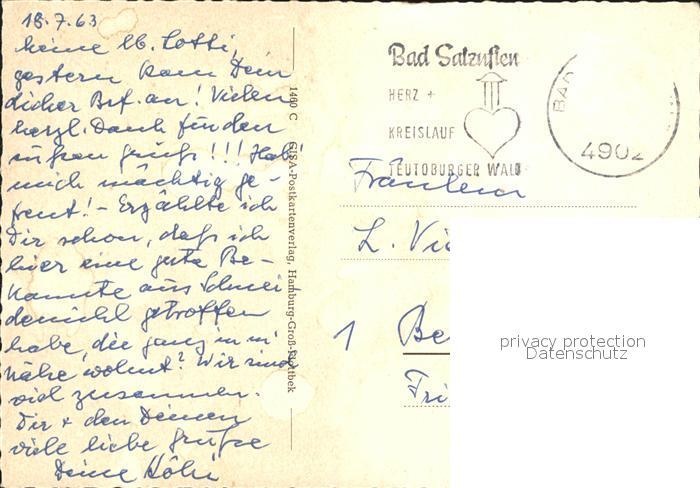 18.7.63
Meine lb. Lotti,
gestern kam Dein
dicker Brf. an! Vielen
herzl. Dank für den
süßen Gruß!!! Hab'
mich mächtig ge-
freut! - Erzählte ich
Dir schon, daß ich
hier eine gute Be-
kannte aus Schnei
demühl getroffen
habe, die ganz in m'
Nähe wohnt? Wir sind
viel zusammen.
Dir + den Deinen
viele liebe Grüße
Deine
1460 C GISA-Postkartenverlag, Hamburg-Groß-Flottbek
Bad Salzuflen
HERZ +
KREISLAUF
TEUTOBURGER WALD
BAD
4902
Fräulein
L. Vi
1 Be
Fri
privacy protection
Datenschutz